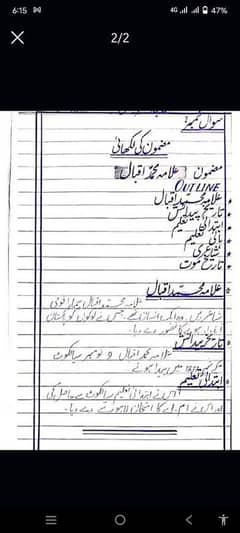 6:15
4G
47%
2/2
سوال نمبر:
مضمون کی لکھائی
مضمون علامہ محمد اقبال
OUTLINE
علامہ محمد اقبال
تاریخ پیدائش
ابتدائی تعلیم
تعلیم
شاعری
تاریخ موت
علامہ محمد اقبال
علامہ محمد اقبال ہمارا قومی
شاعر ہیں وہ ایک انسان تھے جس نے لوگوں کو پاکستان
کا تصور دے دیا۔
تاریخ پیدائش
علامہ محمد اقبال 9 نومبر سیالکوٹ
میں پیدا ہوئے۔
ابتدائی تعلیم
اس نے ابتدائی تعلیم سیالکوٹ سے حاصل کی
اور اس نے ایم اے کا امتحان لاہور سے دے دیا۔